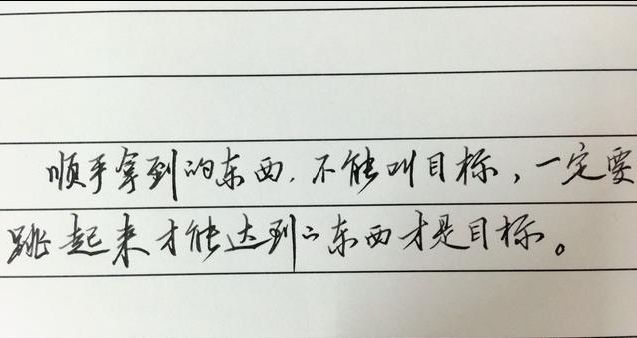 顺手拿到的东西.不能叫目标，一定要
跳起来才能达到的东西才是目标。